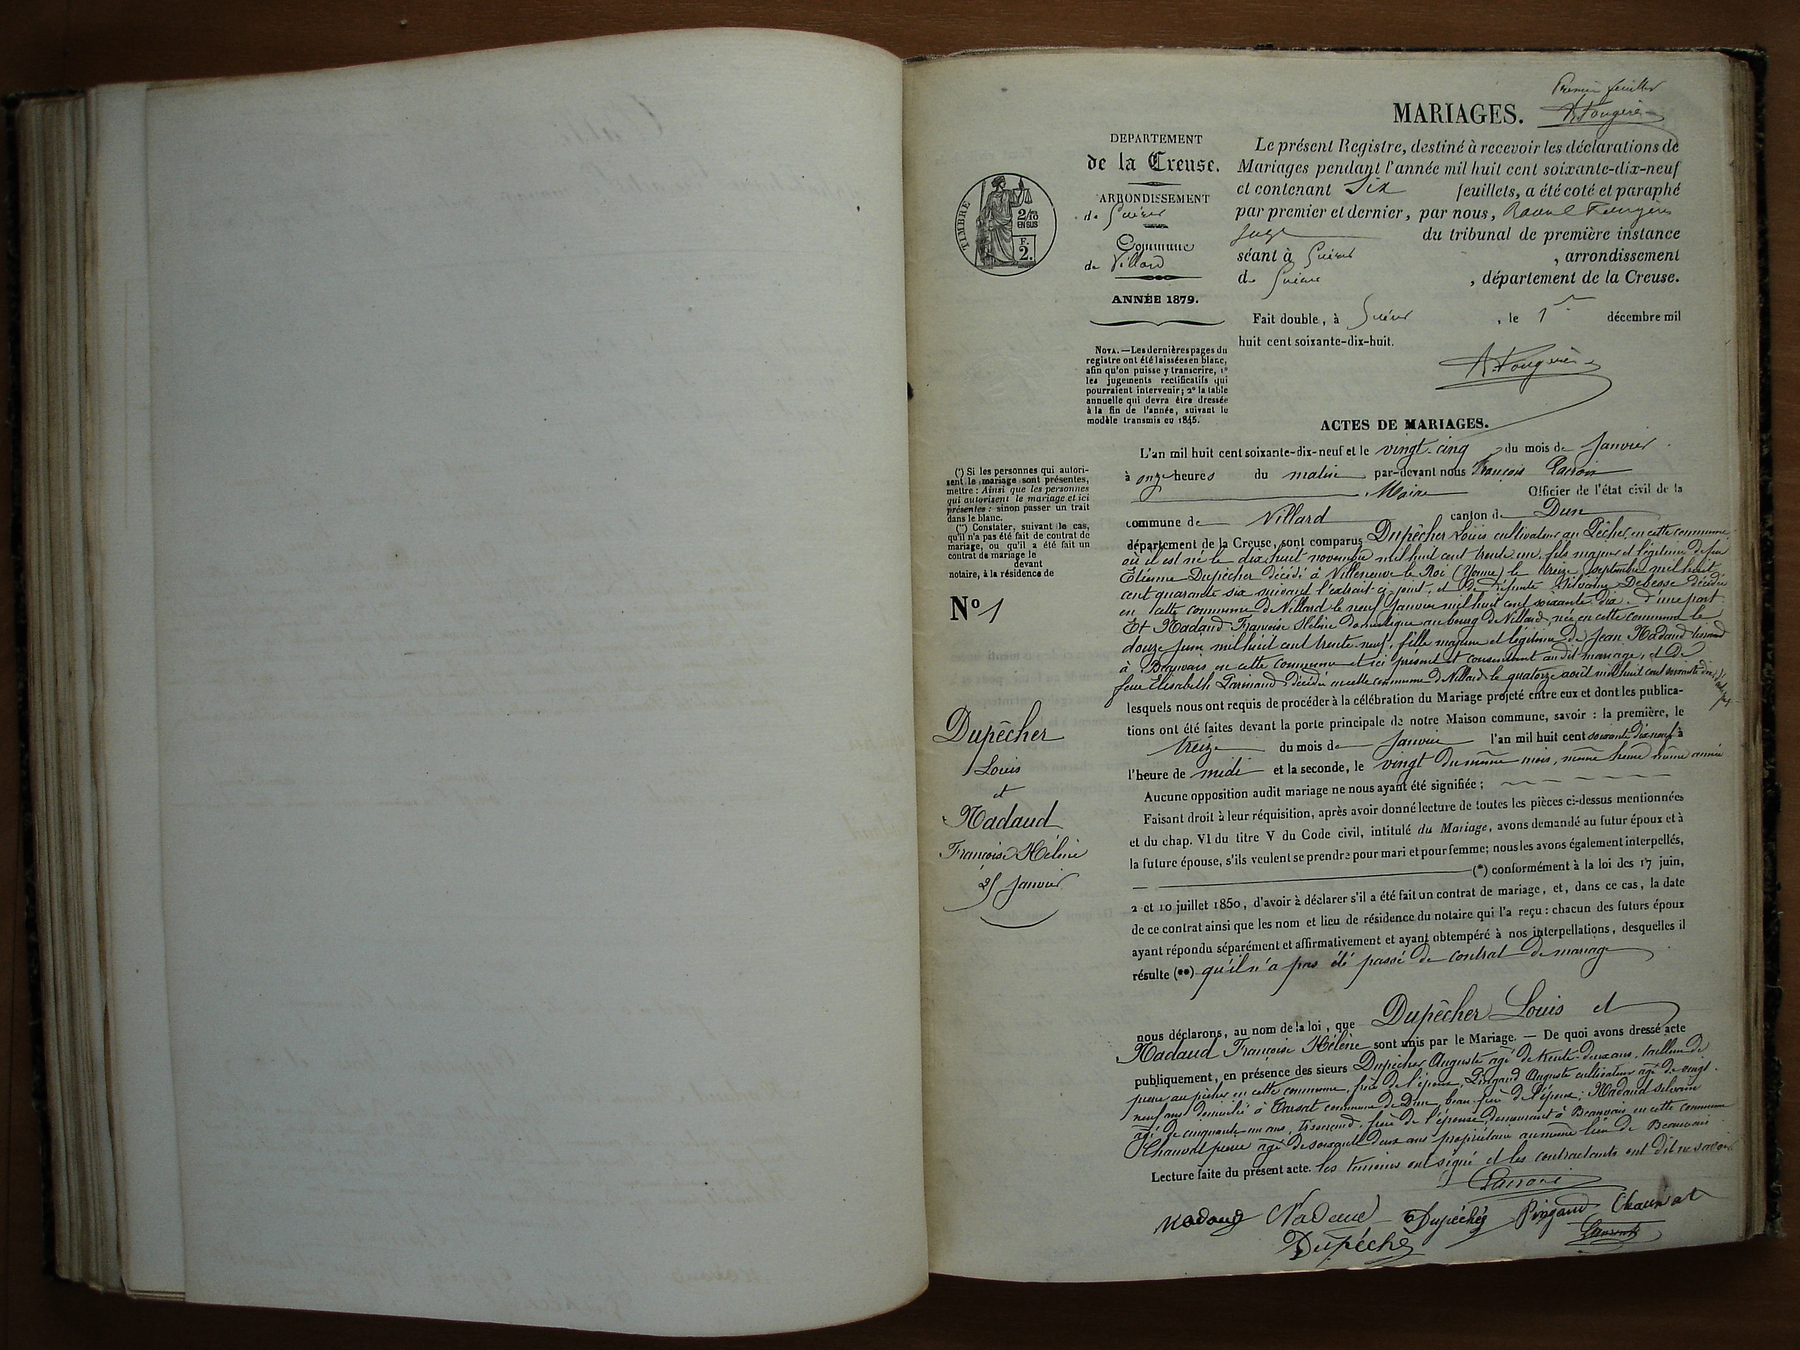 Premier feuillet
MARIAGES.
AFougère
DEPARTEMENT
de la Creuse.
ARRONDISSEMENT
de Guéret
Commune
de Villard
ANNÉE 1879.
TIMBRE
2/10
EN SUS
F.
2.
Le présent Registre, destiné à recevoir les déclarations de
Mariages pendant l'année mil huit cent soixante-dix-neuf
et contenant Six feuillets, a été coté et paraphé
par premier et dernier, par nous, Raoul Fougère
juge du tribunal de première instance
séant à Guéret, arrondissement
de Guéret, département de la Creuse.
Fait double, à Guéret, le 1er décembre mil
huit cent soixante-dix-huit.
AFougère
NOTA. — Les dernières pages du
registre ont été laissées en blanc,
afin qu'on puisse y transcrire, 1°
les jugements rectificatifs qui
pourraient intervenir; 2° la table
annuelle qui devra être dressée
à la fin de l'année, suivant le
modèle transmis en 1845.
ACTES DE MARIAGES.
L'an mil huit cent soixante-dix-neuf et le vingt-cinq du mois de Janvier
à onze heures du matin par-devant nous François
Maire Officier de l'état civil de la
commune de Villard canton de Dun
département de la Creuse, sont comparus Dupêcher Louis cultivateur au Pêcher en cette commune
où il est né le dix huit novembre mil huit cent trente un, fils majeur et légitime de feu
Etienne Dupêcher décédé à Villeneuve le Roi (Yonne) le treize septembre mil huit
cent quarante six suivant l'extrait ci joint, et de défunte Silvaine Debesse décédée
en cette commune de Villard le neuf Janvier mil huit cent soixante dix. d'une part
Et Nadaud Françoise Hélène domestique au bourg de Villard, née en cette commune le
douze juin mil huit cent trente-neuf, fille majeure et légitime de Jean Nadaud tisserand
à Beauvais en cette commune et ici présent et consentant audit mariage, et de
feue Elisabeth Parinaud décédée en cette commune de Villard le quatorze avril mil huit cent soixante dix
lesquels nous ont requis de procéder à la célébration du Mariage projeté entre eux et dont les publica-
tions ont été faites devant la porte principale de notre Maison commune, savoir : la première, le
treize du mois de Janvier l'an mil huit cent soixante dix neuf à
l'heure de midi et la seconde, le vingt du même mois, même heure même année
Aucune opposition audit mariage ne nous ayant été signifiée ;
Faisant droit à leur réquisition, après avoir donné lecture de toutes les pièces ci-dessus mentionnées
et du chap. VI du titre V du Code civil, intitulé du Mariage, avons demandé au futur époux et à
la future épouse, s'ils veulent se prendre pour mari et pour femme; nous les avons également interpellés,
(*) conformément à la loi des 17 juin,
2 et 10 juillet 1850, d'avoir à déclarer s'il a été fait un contrat de mariage, et, dans ce cas, la date
de ce contrat ainsi que les nom et lieu de résidence du notaire qui l'a reçu : chacun des futurs époux
ayant répondu séparément et affirmativement et ayant obtempéré à nos interpellations, desquelles il
résulte (**) qu'il n'a pas été passé de contrat de mariage
nous déclarons, au nom de la loi, que Dupêcher Louis et
Nadaud Françoise Hélène sont unis par le Mariage. — De quoi avons dressé acte
publiquement, en présence des sieurs Dupêcher Auguste âgé de trente-deux ans, tailleur de
pierre au pêcher en cette commune, frère de l'époux, Pingaud Auguste cultivateur âgé de vingt-
neuf ans domicilié à commune de Dun, beau-frère de l'époux; Nadaud Silvain
âgé de cinquante un ans, tisserand, frère de l'épouse demeurant à Beauvais en cette commune
Chauvat pierre âgé de soixante deux ans propriétaire au même lieu de Beauvais
Lecture faite du présent acte. les témoins ont signé et les contractants ont dit ne savoir
Nadaud Nadaud Dupêché Pingaud Chauvat
Dupêché
(*) Si les personnes qui autori-
sent le mariage sont présentes,
mettre : Ainsi que les personnes
qui autorisent le mariage et ici
présentes : sinon passer un trait
dans le blanc.
(**) Constater, suivant le cas,
qu'il n'a pas été fait de contrat de
mariage, ou qu'il a été fait un
contrat de mariage le
devant
notaire, à la résidence de
N° 1
Dupêcher
Louis
et
Nadaud
Françoise Hélène
25 Janvier